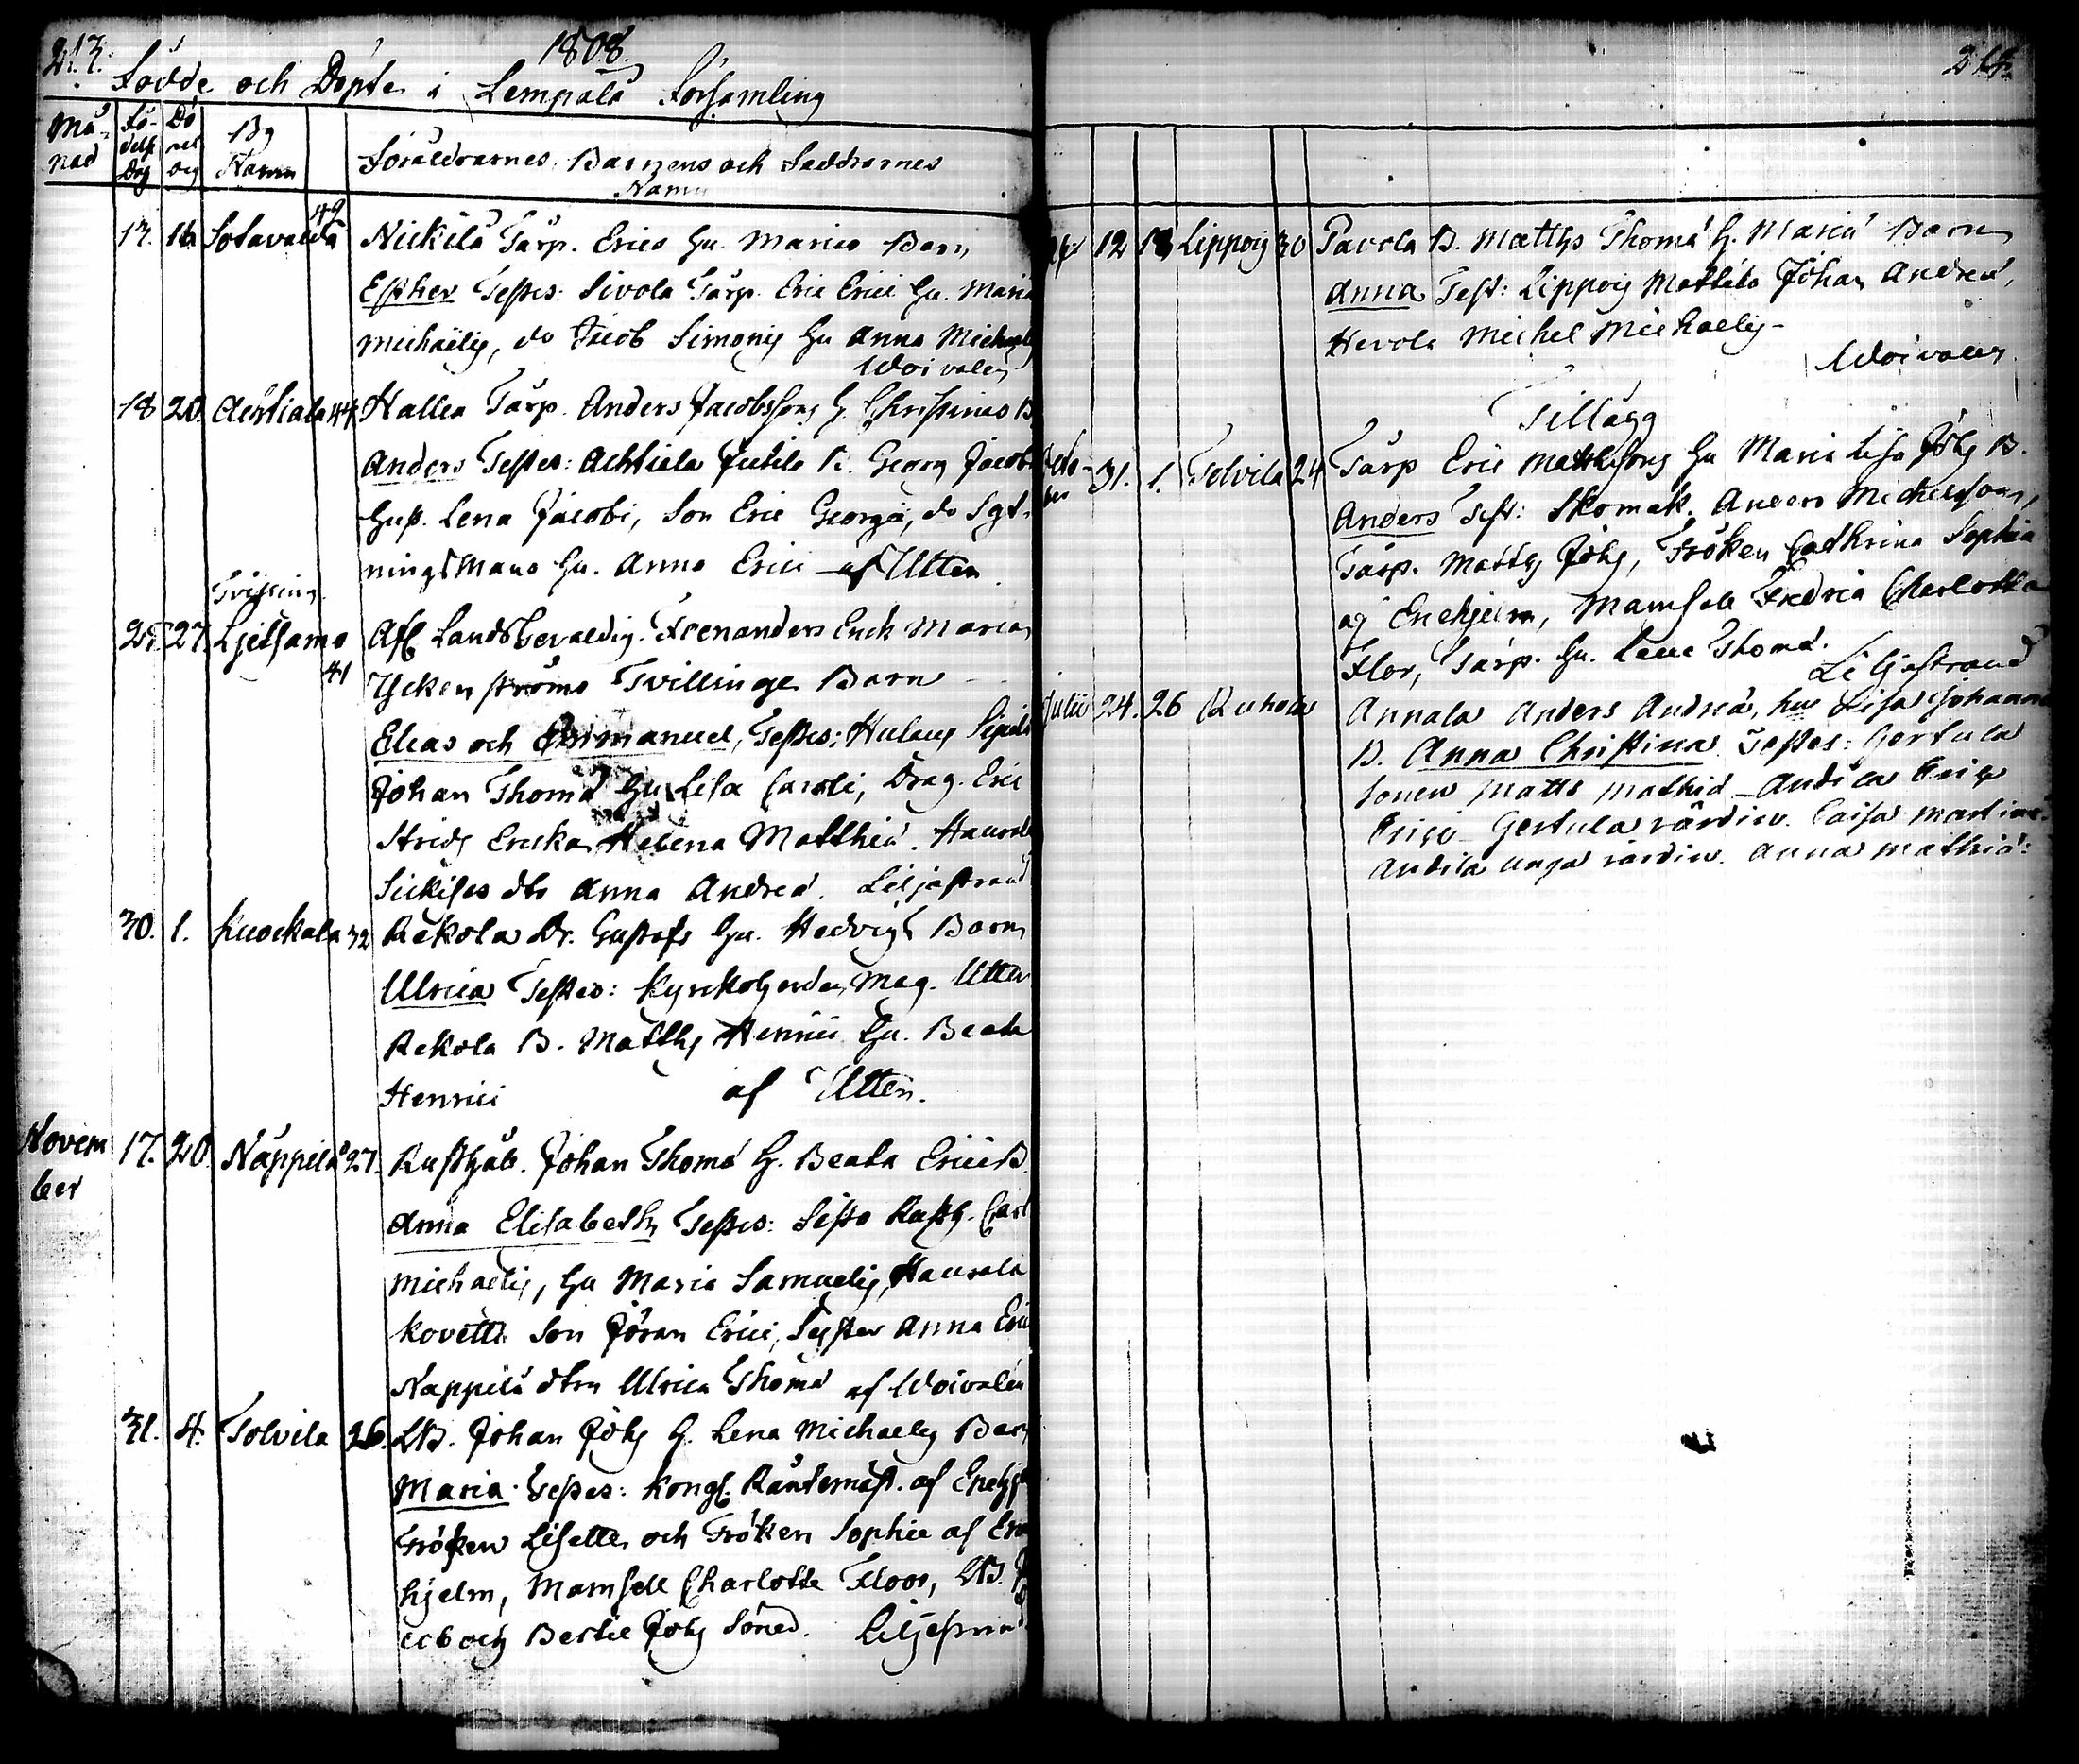 213.
1808.
Födde och Döpte i Lempälä Församling
Må-
nad
Fö-
delse
Dag
Dö
pel
dag
By
Namn
Föräldrarnes, Barnens och Faddrarnes
Namn
13. 16 Sotavalda 49 Nickilä Torp. Erics hu. Marias Barn
Esther Testes: Sivola Torp. Eric Erici hu. Maria
Michaëlis, do Jacob Simonis hu Anna Michaelis
Woivalen
18 20. Achtiala 44 Hallea Torp. Anders Jacobssons h. Christinas B
Anders Testes: Achtiala Jutila B. Georg Jacobi
hust. Lena Jacobi, Son Eric Georgii, do
ningsmans hu. Anna Erici af Utter
25. 27. Ljetsamo 41 Afl. Landsgevaldig. Frenanders Enck Marias
Tvillinge Barn
Elias och Emmanuel, Testes:
Johan Thomæ hu Lisa Caroli, Drag. Eric
Strids Ericka Helena Matthiæ. Haurala
dtr Anna Andreæ. Liljestrand
30. 1. Kuockala 32 Rekola Dr. Gustafs hu. Hedvigs Barn
Ulrica Testes: Kyrkoherden Mag. Utter
Rekola B. Matths Henrici hu. Beata
Henrici af Utter.
Novem
ber
17. 20. Näppilä 27. Rusthåll. Johan Thomæ h. Beata Erici B.
Anna Elisabeth Testes: Rusth. Carl
Michaelis, hu Maria Samuelis, Haurala
Kovetti Son Jöran Erici, Syster Anna Erici
Näppilä dtrn Ulrica Thomæ af Woivalén
31. 4. Tolvila 26. LB. Johan Johs h. Lena Michaelis Barn
Maria Testes: Kongl. Räntemäst. af Enehje
Fröken Lisette och Fröken Sophie af Ene
hjelm, Mamsell Charlotte Floor, LB. J
acob och Bertil Johs Söner. Liljestrand
214.
12 13 Lippois 30 Pavola B. Matths Thomæ h. Mariæ Barn
Anna Test: Lippois Mattila Johan Andreæ,
Hervola Michel Michaelis
Woivalen
Tillägg
Octo-
ber
31. 1. Tolvila 24 Torp Eric Matthssons hu Maria Lisa Johs B.
Anders Test: Skomak. Anders Michelsson,
Torp. Matts Johs, Fröken Cathrina Sophia
af Enehjelm, Mamsell Fredrica Charlotta
Flor, Torp. hu. Lena Thomæ.
Liljestrand
Julii 24. 26 Kuhola Annala Anders Andreæ, hu Lisa Johannis
B. Anna Christina Testes: Gertula
sonen Matts Mathiæ Andila Eric
Erici Gertula värdin. Caisa Martini
Andila unga värdin. Anna Mathiæ: